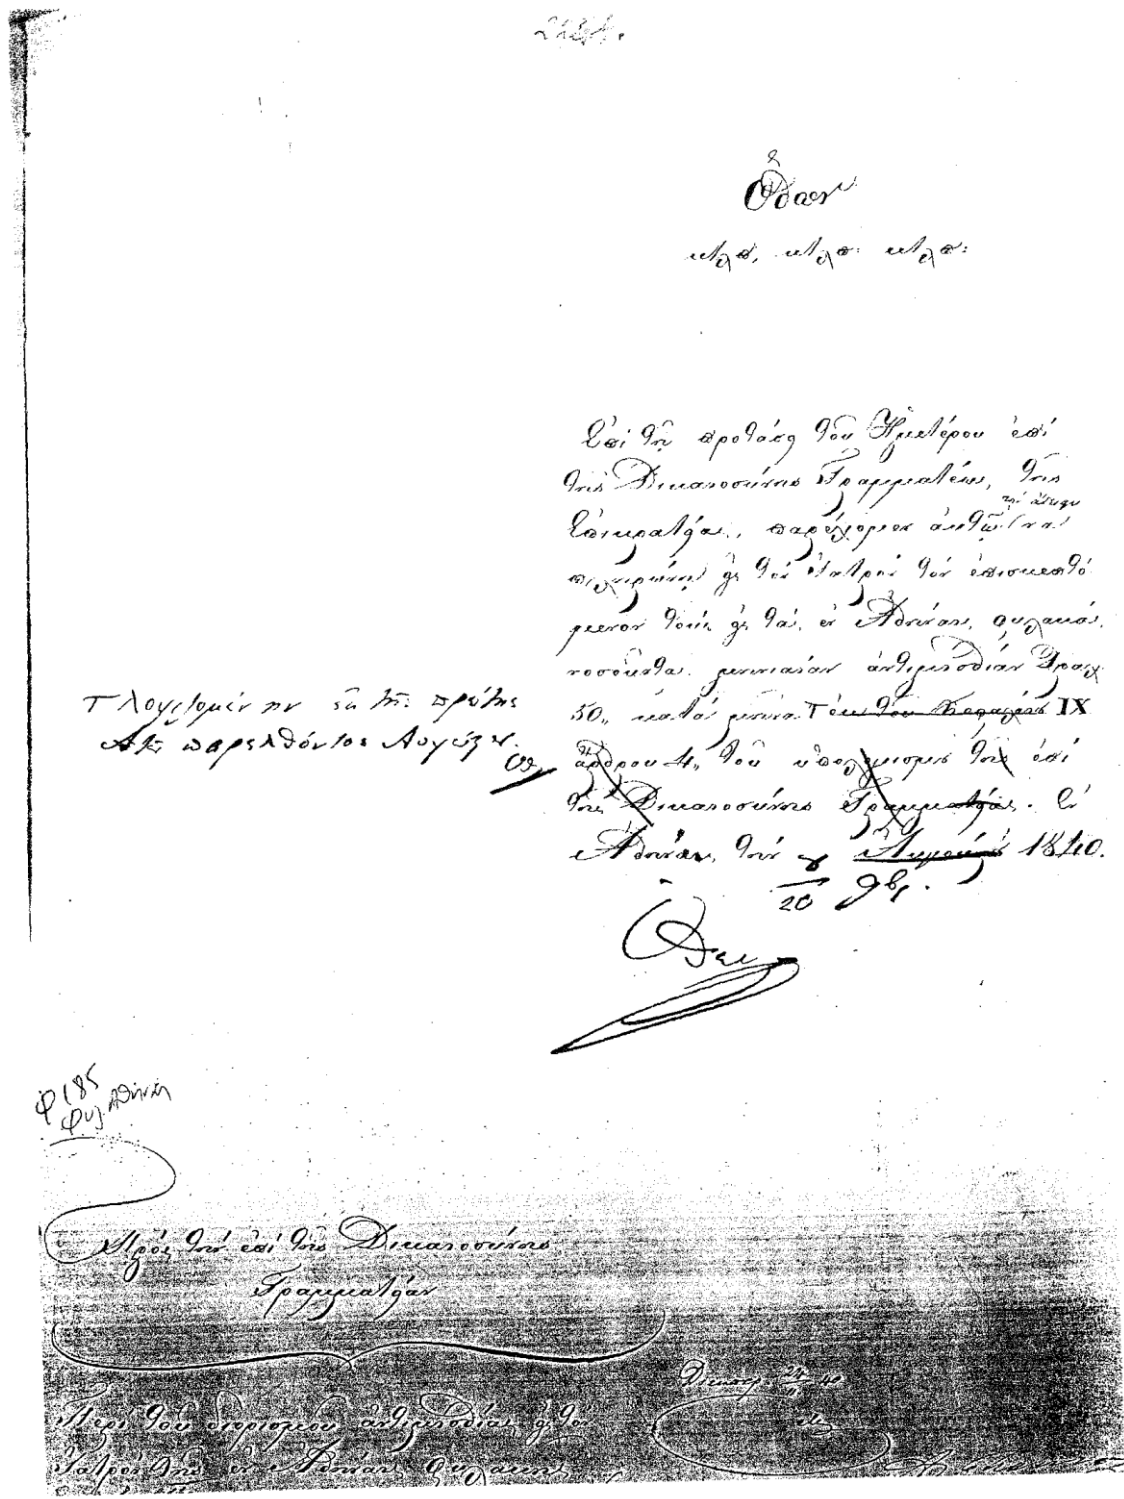 Ὄθων
κτλπ, κτλπ: κτλπ:
Ἐπὶ τῇ προτάσει τοῦ Ἡμετέρου ἐπὶ
τῆς Δικαιοσύνης Γραμματέως, τῆς
Ἐπικρατείας, παρέχομεν
εἰς τὸν Ἰατρὸν τὸν ἐπισκεπτό
μενον τοὺς εἰς τὰς ἐν Ἀθήναις φυλακάς,
νοσοῦντας μηνιαίαν ἀντιμισθίαν Δραχ
50,, κατὰ μῆνα Τ ἐκ τοῦ Κεφαλαίου IX
ἄρθρου 4,, τοῦ τῆς ἐπὶ
τῆς Δικαιοσύνης Γραμματείας. Ἐν
Ἀθήναις, τὴν 8 1840.
20 9βρ.
Τ λογιζομένην ἐκ τῆς πρώτης
παρελθόντος Αὐγούστ.
Ὄθων
Φ185
Φυλ. Ἀθηνῶν
Πρὸς τὴν ἐπὶ τῆς Δικαιοσύνης
Γραμματείαν
Περὶ τοῦ διορισμοῦ ἀντιμισθίας εἰς τὸν
Ἰατρὸν τῆς ἐν Ἀθήναις φυλακῆς